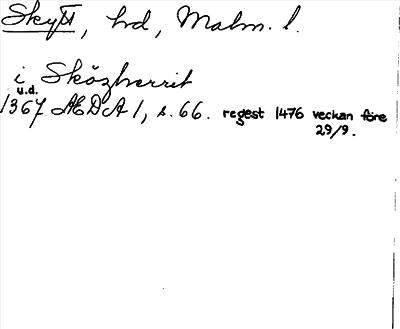 Skytt, hd, Malm. l.
i Sközherrit
u.d.
1367 ÆDA 1, s. 66. regest 1476 veckan före
29/9.